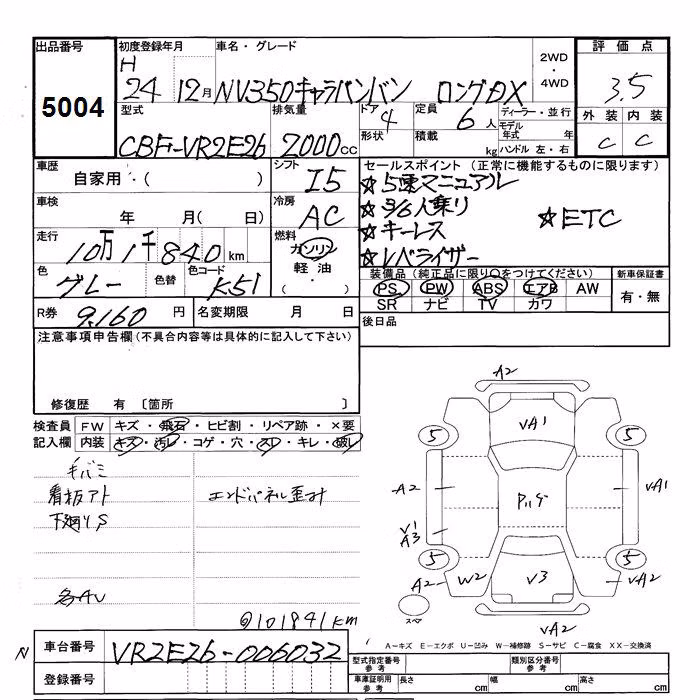 出品番号 初度登録年月 車名・グレード 2WD・4WD 評価点
5004 H 24 12月 NV350キャラバンバン ロングDX 3.5
型式 排気量 ドア 4 定員 6人 ディーラー・並行 外装 内装
CBF-VR2E26 2000cc 形状 積載 kg モデル年式 年 ハンドル 左・右 C C
車歴 自家用・( ) シフト I5 セールスポイント (正常に機能するものに限ります)
☆5速マニュアル
車検 年 月( 日) 冷房 AC ☆3/6人乗り
☆キーレス ☆ETC
走行 10万1千840km 燃料 ガソリン 軽油・( ・ ) ☆レベライザー
色 グレー 色替 色コード K51 装備品 (純正品に限り○をつけてください) 新車保証書
PS PW ABS エアB AW 有・無
SR ナビ TV カワ
R券 9,160円 名変期限 月 日 後日品
注意事項申告欄(不具合内容等は具体的に記入して下さい)
修復歴 有 〔箇所 〕
検査員 FW キズ・飛石・ヒビ割・リペア跡・×要
記入欄 内装 キズ・汚レ・コゲ・穴・スレ・キレ・破レ
毛バミ
看板アト エンドパネル歪み
下廻りS
各AU
@101841km
A2
VA1
5 5
A2 VA1
V1
A3
5 5
A2 W2 V3 A2
スペ
VA2
A-キズ E-エクボ U-凹み W-補修跡 S-サビ C-腐食 XX-交換済
N 車台番号 VR2E26-006032
登録番号
型式指定番号 参考 類別区分番号 参考
車庫証明用 参考 長さ cm 幅 cm 高さ cm